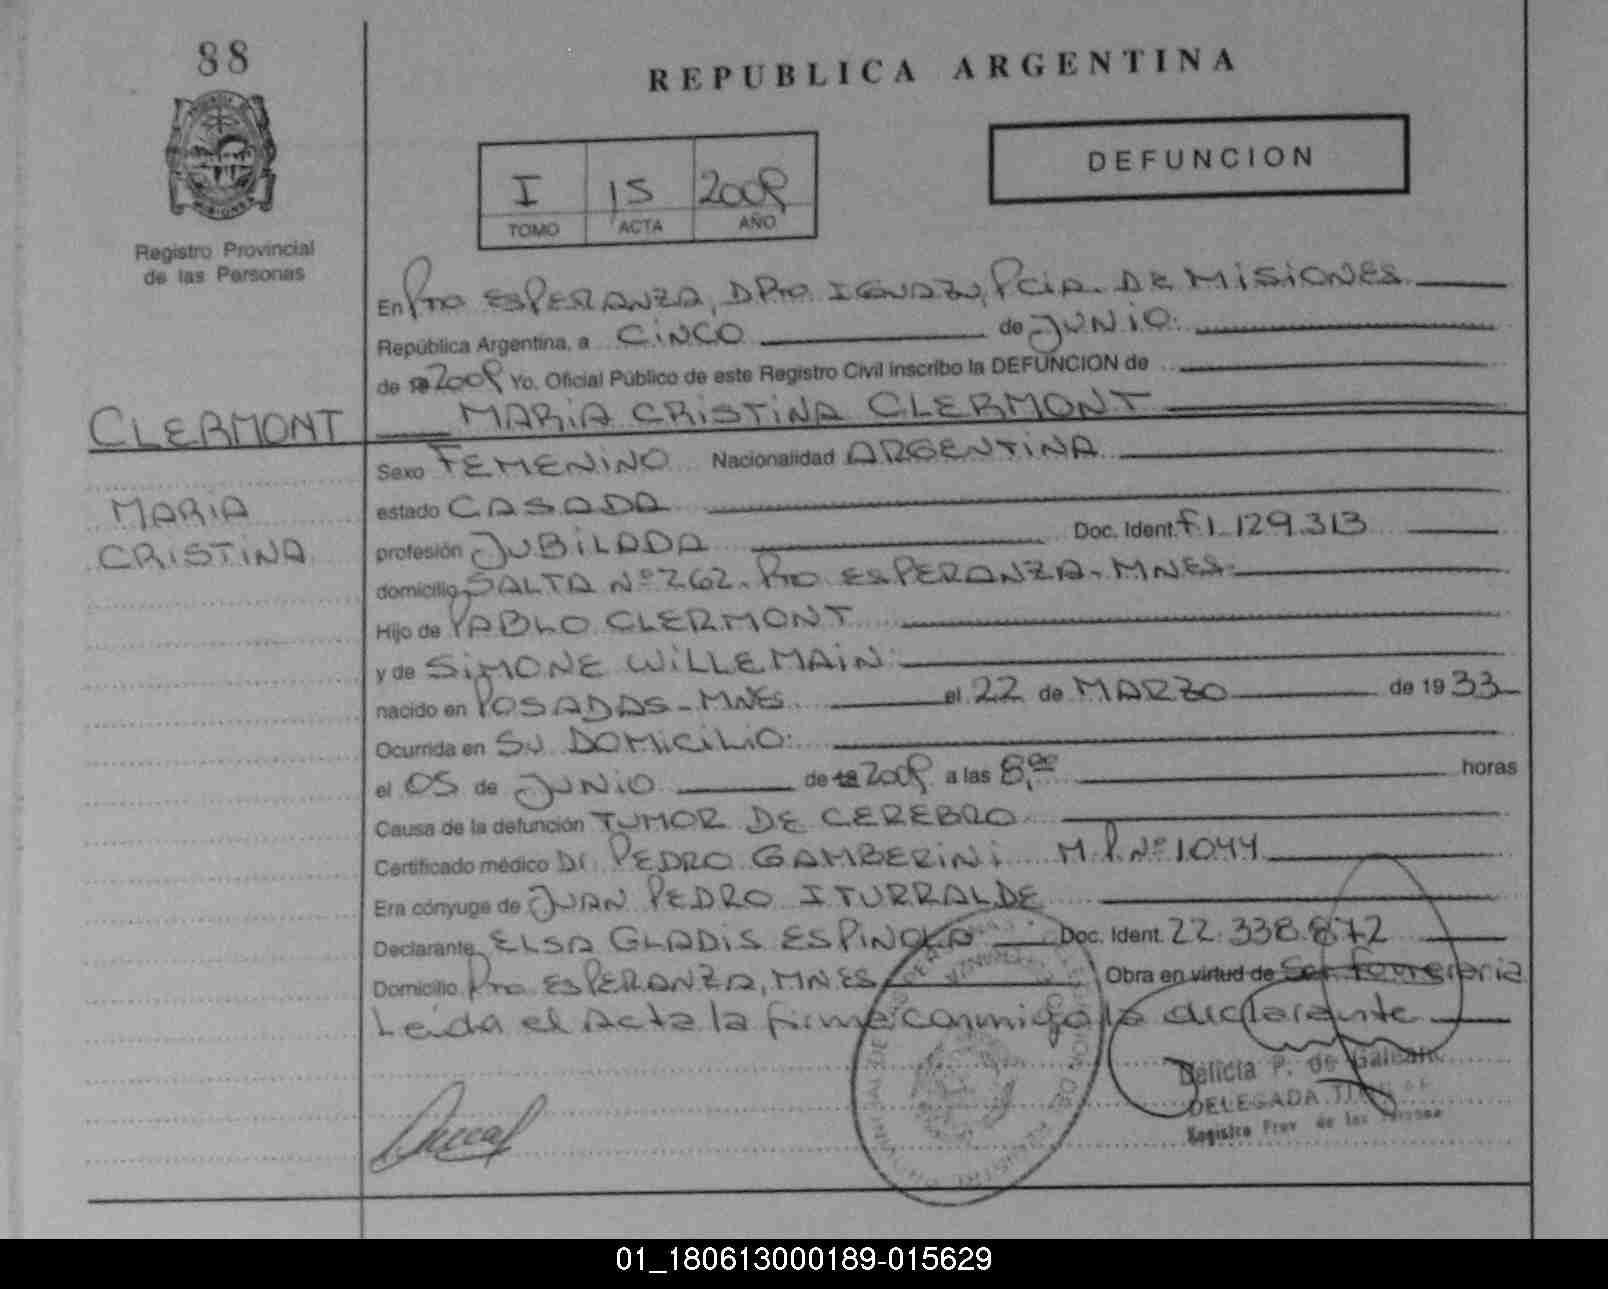 88
REPUBLICA ARGENTINA
DEFUNCION
I 15 2009
TOMO ACTA AÑO
MISIONES
Registro Provincial
de las Personas
En Pto ESPERANZA, DPto. IGUAZU, PCIA. DE MISIONES
República Argentina, a CINCO de JUNIO:
de 19 2009 Yo, Oficial Público de este Registro Civil inscribo la DEFUNCION de
MARIA CRISTINA CLERMONT
CLERMONT
MARIA
CRISTINA
Sexo FEMENINO Nacionalidad ARGENTINA
estado CASADA
profesión JUBILADA Doc. Ident. F1.129.313
domicilio SALTA Nº 262. Pto ESPERANZA - MNES.
Hijo de PABLO CLERMONT
y de SIMONE WILLEMAIN.
nacido en POSADAS - MNES. el 22 de MARZO de 1933
Ocurrida en SU DOMICILIO:
el 05 de JUNIO de 19 2009 a las 8,00 horas
Causa de la defunción TUMOR DE CEREBRO
Certificado médico Dr. PEDRO GAMBERINI M.P. Nº 1044
Era cónyuge de JUAN PEDRO ITURRALDE
Declarante ELSA GLADIS ESPINOLA Doc. Ident. 22.338.872
Domicilio Pto ESPERANZA, MNES Obra en virtud de
Leida el Acta la firma conmigo la declarante
Delicia P. de
DELEGADA
Registro Prov. de las
01_180613000189-015629